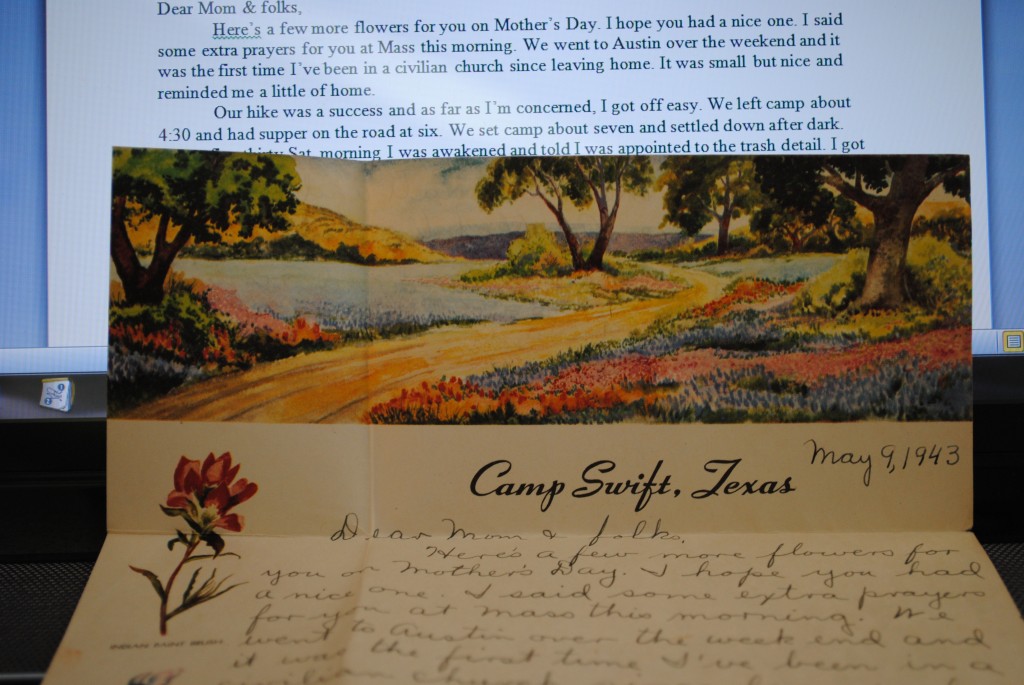 Dear Mom & folks,
Here's a few more flowers for you on Mother's Day. I hope you had a nice one. I said
some extra prayers for you at Mass this morning. We went to Austin over the weekend and it
was the first time I've been in a civilian church since leaving home. It was small but nice and
reminded me a little of home.
Our hike was a success and as far as I'm concerned, I got off easy. We left camp about
4:30 and had supper on the road at six. We set camp about seven and settled down after dark.
Sat. morning I was awakened and told I was appointed to the trash detail. I got
May 9, 1943
Camp Swift, Texas
Dear Mom & folks,
Here's a few more flowers for
you on Mother's Day. I hope you had
a nice one. I said some extra prayers
for you at Mass this morning. We
went to Austin over the week end and
it was the first time I've been in a
INDIAN PAINT BRUSH